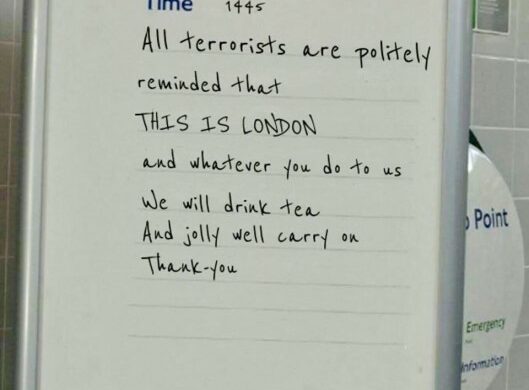 Time 1445
All terrorists are politely
reminded that
THIS IS LONDON
and whatever you do to us
We will drink tea
And jolly well carry on
Thank-you
Point
Emergency
Information